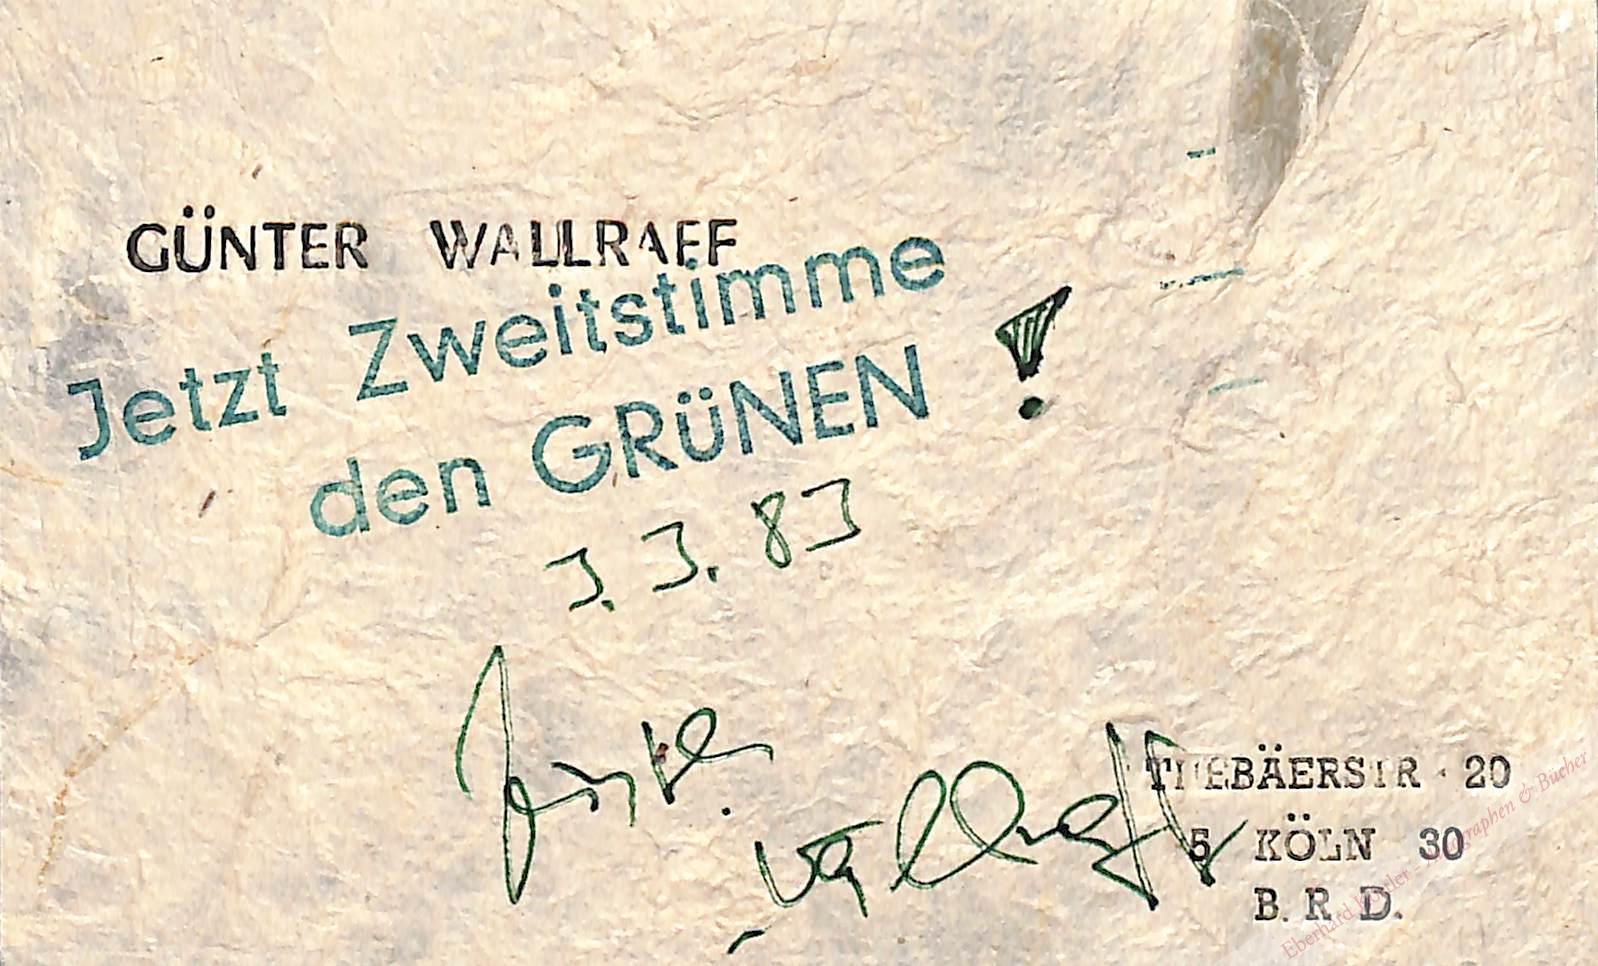 GÜNTER WALLRAFF
Jetzt Zweitstimme
den GRÜNEN !
3. 3. 83
Günter Wallraff
THEBÄERSTR. 20
5 KÖLN 30
B. R. D.